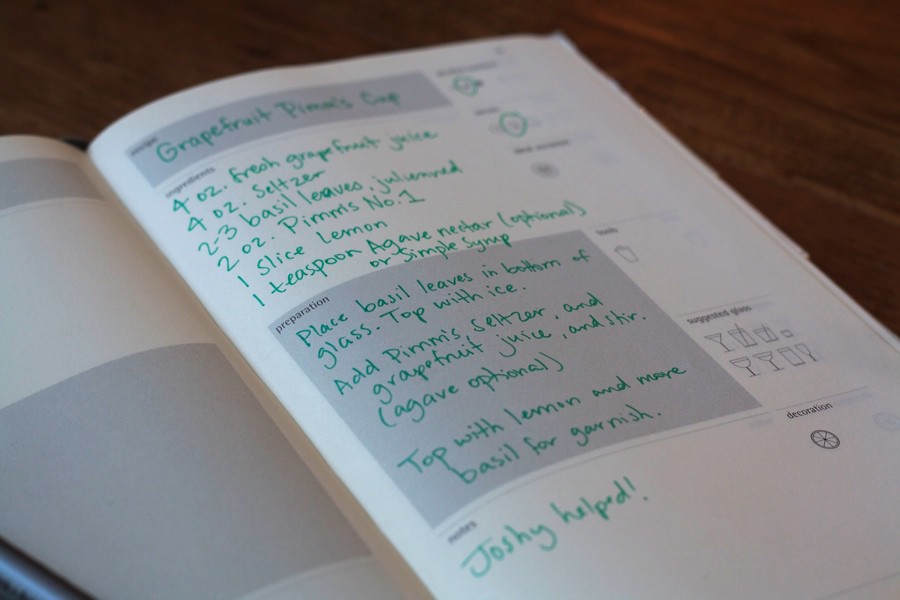 recipe
Grapefruit Pimm's Cup
ingredients
4 oz. fresh grapefruit juice
4 oz. Seltzer
2-3 basil leaves, julienned
2 oz. Pimm's No. 1
1 slice Lemon
1 teaspoon Agave nectar (optional)
or Simple Syrup
preparation
Place basil leaves in bottom of
glass. Top with ice.
Add Pimm's, Seltzer, and
grapefruit juice, and stir.
(agave optional)
Top with lemon and more
basil for garnish.
notes
Joshy helped!
tools
suggested glass
decoration